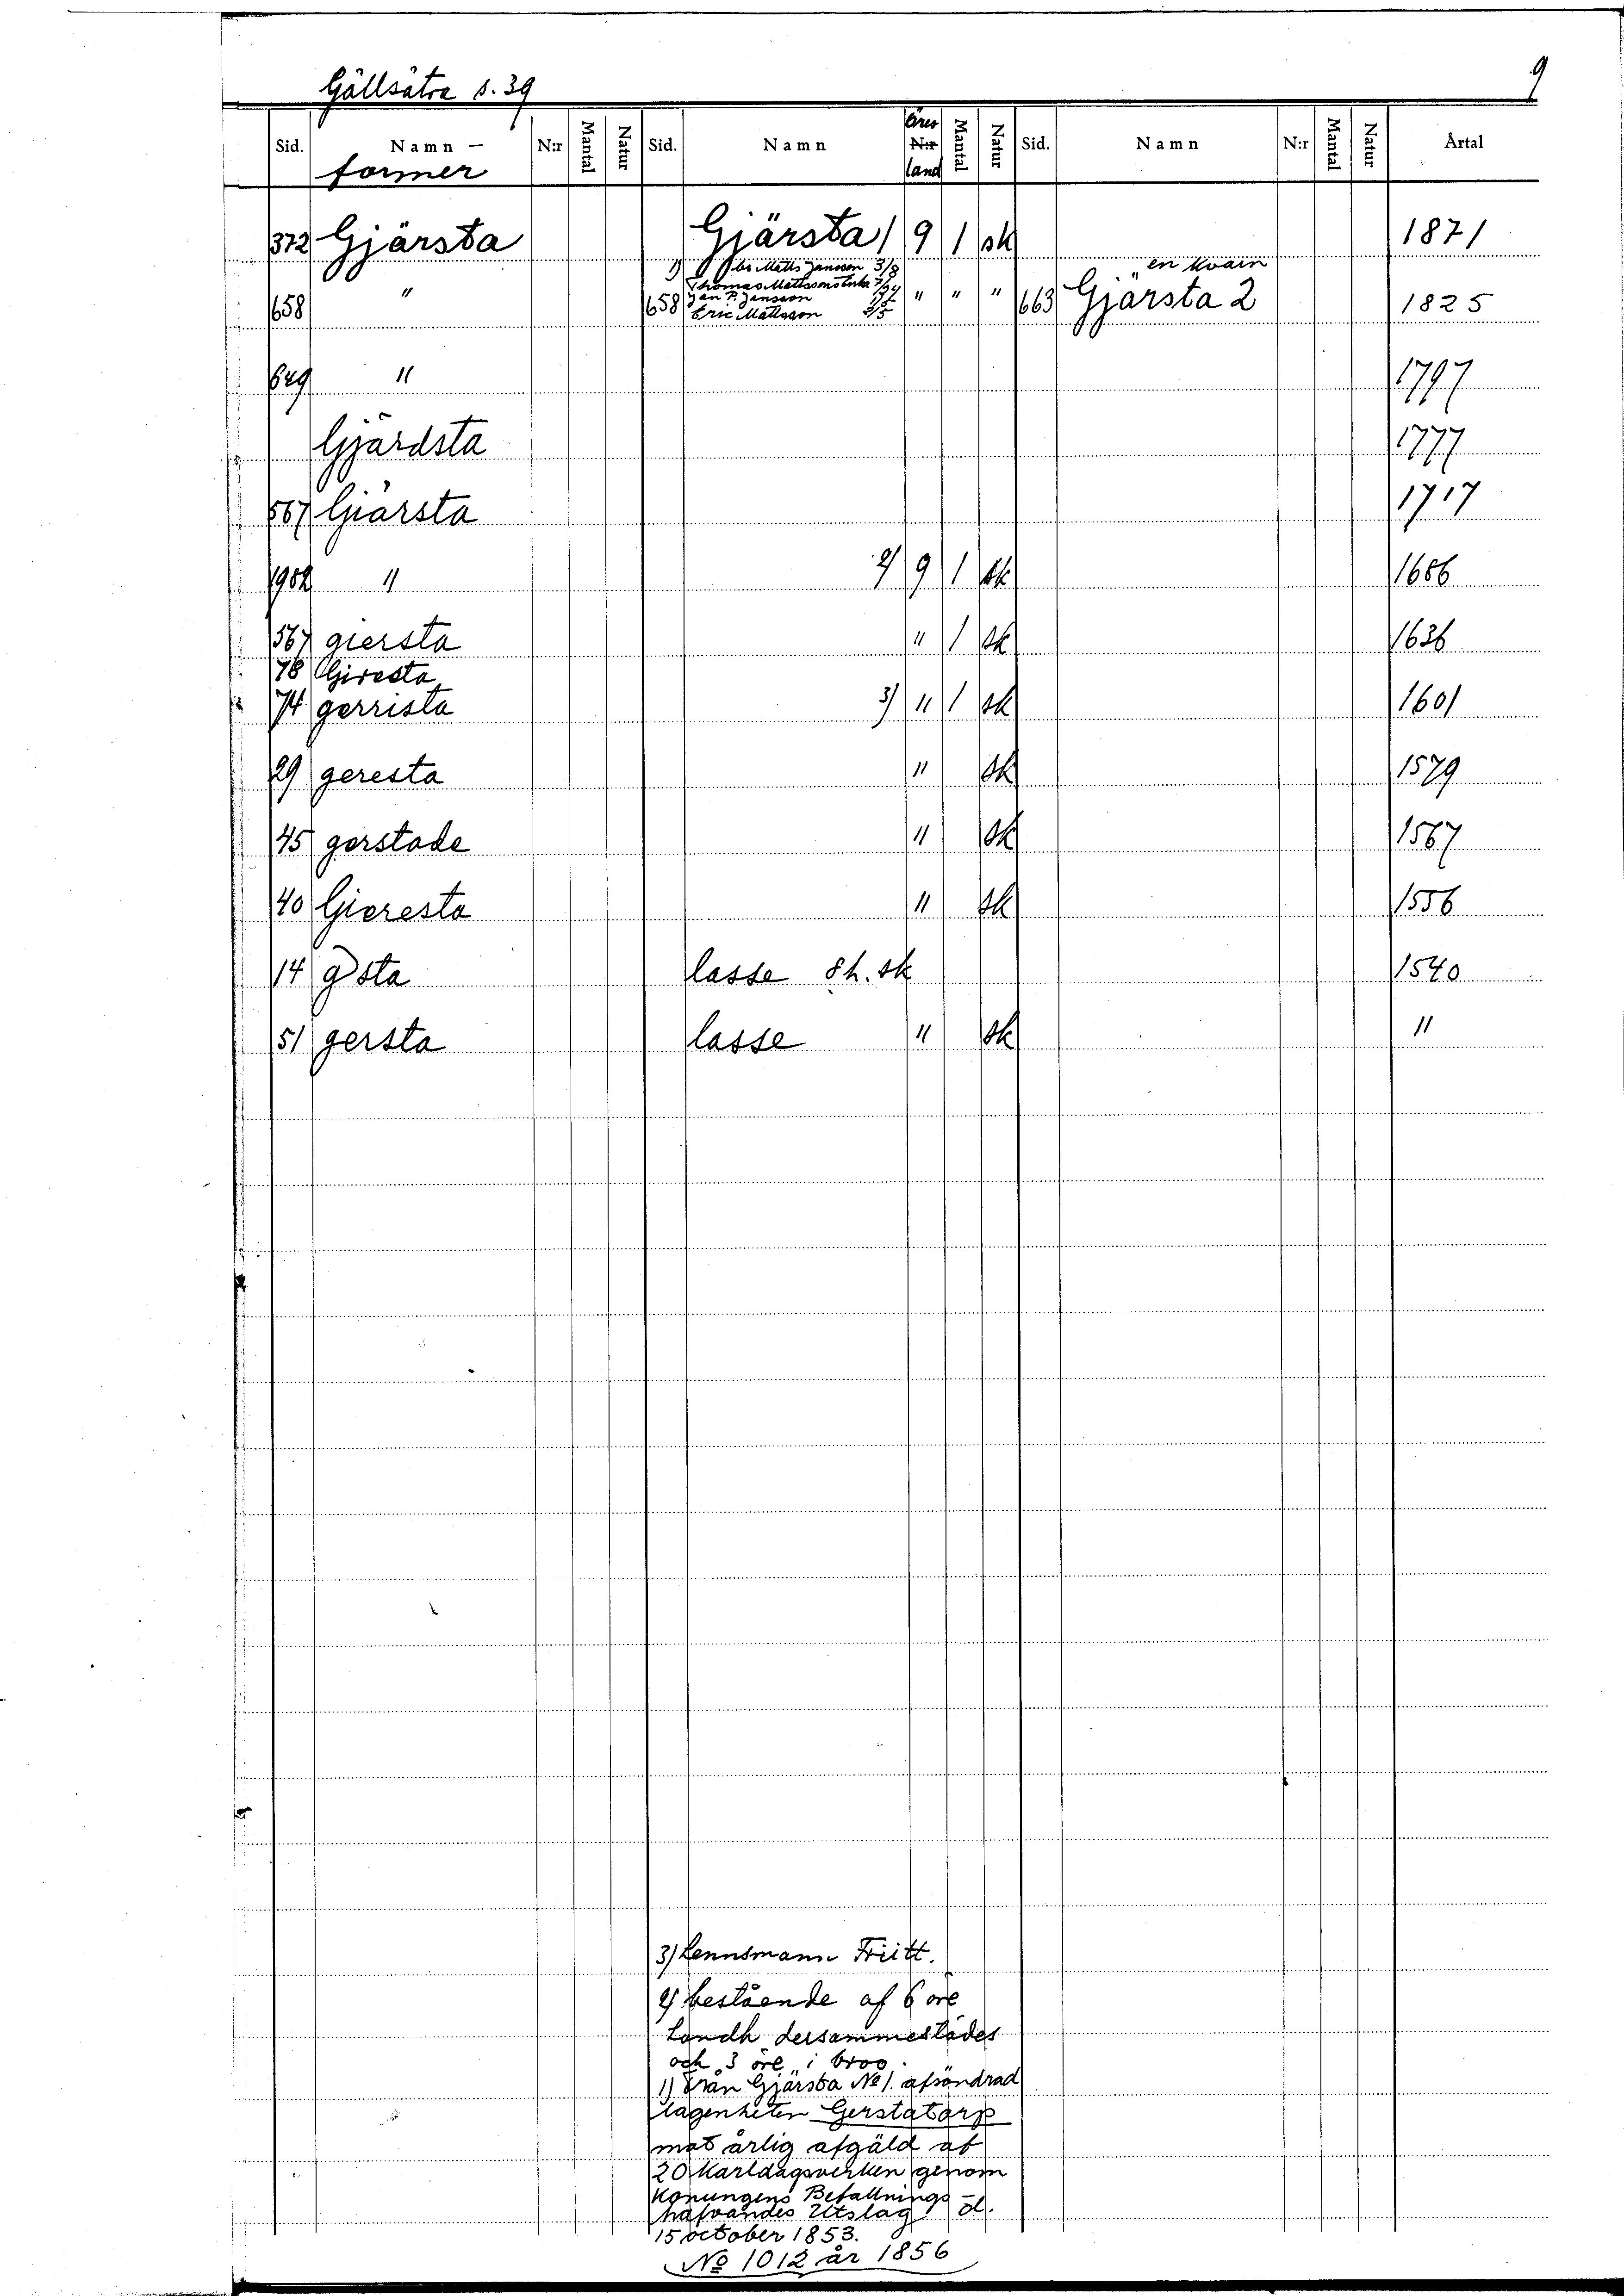 Gällsätra s. 39
9
Sid. Namn - former N:r Mantal Natur Sid. Namn Öres N:r land Mantal Natur Sid. Namn N:r Mantal Natur Årtal
372 Gjärsta Gjärsta 1 9 1 sk 1871
1) Matts Jansson 3/8 en kvarn
Thomas Mattssons Enka
658 " 658 Jan P. Jansson " " " 663 Gjärsta 2 1825
Eric Mattsson
649 " 1797
Gjärdsta 1777
567 Giärsta 1717
1902 " 2) 9 1 sk 1686
567 giersta " 1 sk 1636
78 Giresta
74 gerrista 3) " 1 sk 1601
29 geresta " sk 1579
45 gerstade " sk 1567
40 Gieresta " sk 1556
14 gsta lasse 8 h. sk 1540
51 gersta lasse " sk "
3) Lennsmann Friitt.
2) bestående af 6 öre
Landh dersammestädes
och 3 öre i broo
1) Från Gjärsta No 1. afsöndrad
lägenheten Gerstatorp
mot årlig afgäld af
20 Karldagsverken genom
Konungens Befallnings-
hafvandes Utslag d.
15 october 1853.
No 1012 år 1856